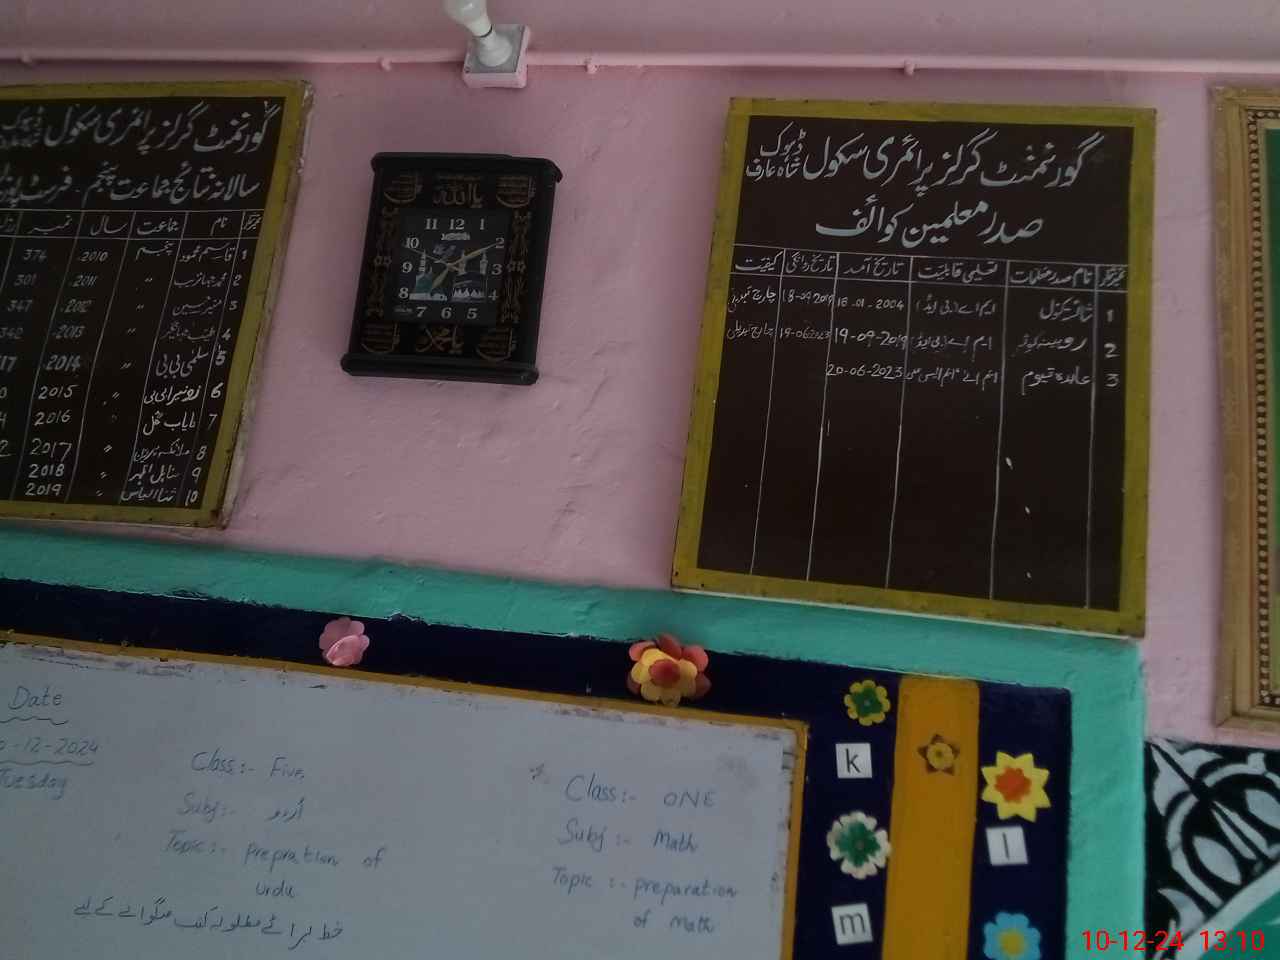 گورنمنٹ گرلز پرائمری سکول ڈہوک
سالانہ نتائج جماعت پنجم - فرسٹ
نمبر شمار نام جماعت سال نمبر
1 قاسم محمود پنجم 2010 374
2 محمد جہانزیب " 2011 301
3 " 2012 347
4 " 2013 340
5 سلمیٰ بی بی " 2014 17
6 " 2015
7 " 2016
8 " 2017
9 " 2018
10 ثنا الیاس " 2019
یااللہ
11 12 1
10 2
9 3
8 4
7 6 5
یامحمد
گورنمنٹ گرلز پرائمری سکول ڈہوک شاہ عارف
صدر معلمین کوائف
نمبر شمار نام صدر معلمات تعلیمی قابلیت تاریخ آمد تاریخ روانگی کیفیت
1 شازیہ کنول ایم اے (بی ایڈ) 16-01-2004 18-09-2019 چارج تبدیلی
2 روبینہ ایم اے (بی ایڈ) 19-09-2019 19-06-2023 چارج تبدیلی
3 عابدہ قیوم 20-06-2023
Date
-12-2024
Tuesday
Class:- Five.
Subj:- اُردو
Topic:- prepration of
urdu
خط برائے مطلوبہ کتب منگوانے کے لیے
Class:- ONE
Subj:- Math
Topic:- preparation
of Math
k
l
m
10-12-24 13:10